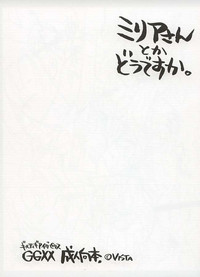 ミリアさん
とか
どうですか。
GGXX 成人向本 ©VISTA